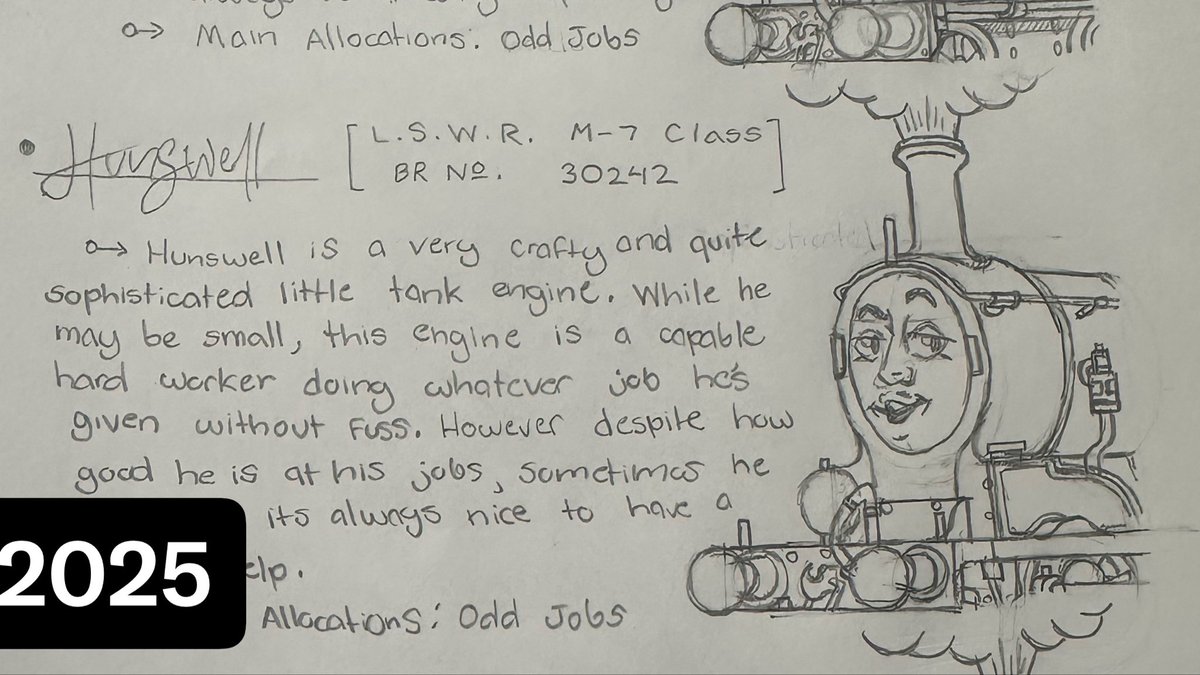 Main Allocations: Odd Jobs
Hunswell [L.S.W.R. M-7 Class
BR Nº. 30242]
Hunswell is a very crafty and quite
sophisticated little tank engine. While he
may be small, this engine is a capable
hard worker doing whatever job he's
given without fuss. However despite how
good he is at his jobs, sometimes he
its always nice to have a
elp.
Allocations: Odd Jobs
2025